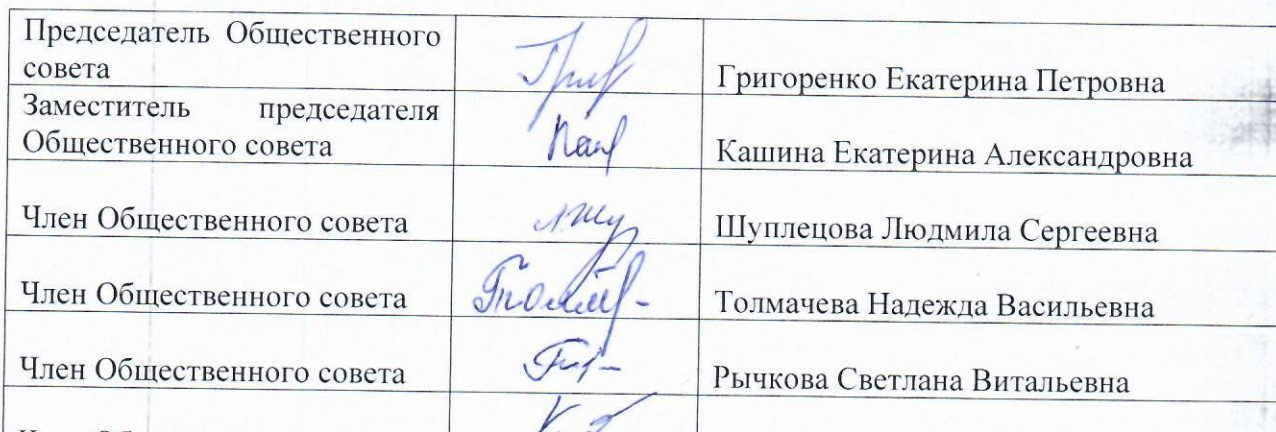 Председатель Общественного
совета
Григоренко Екатерина Петровна
Заместитель председателя
Общественного совета
Кашина Екатерина Александровна
Член Общественного совета
Шуплецова Людмила Сергеевна
Член Общественного совета
Толмачева Надежда Васильевна
Член Общественного совета
Рычкова Светлана Витальевна